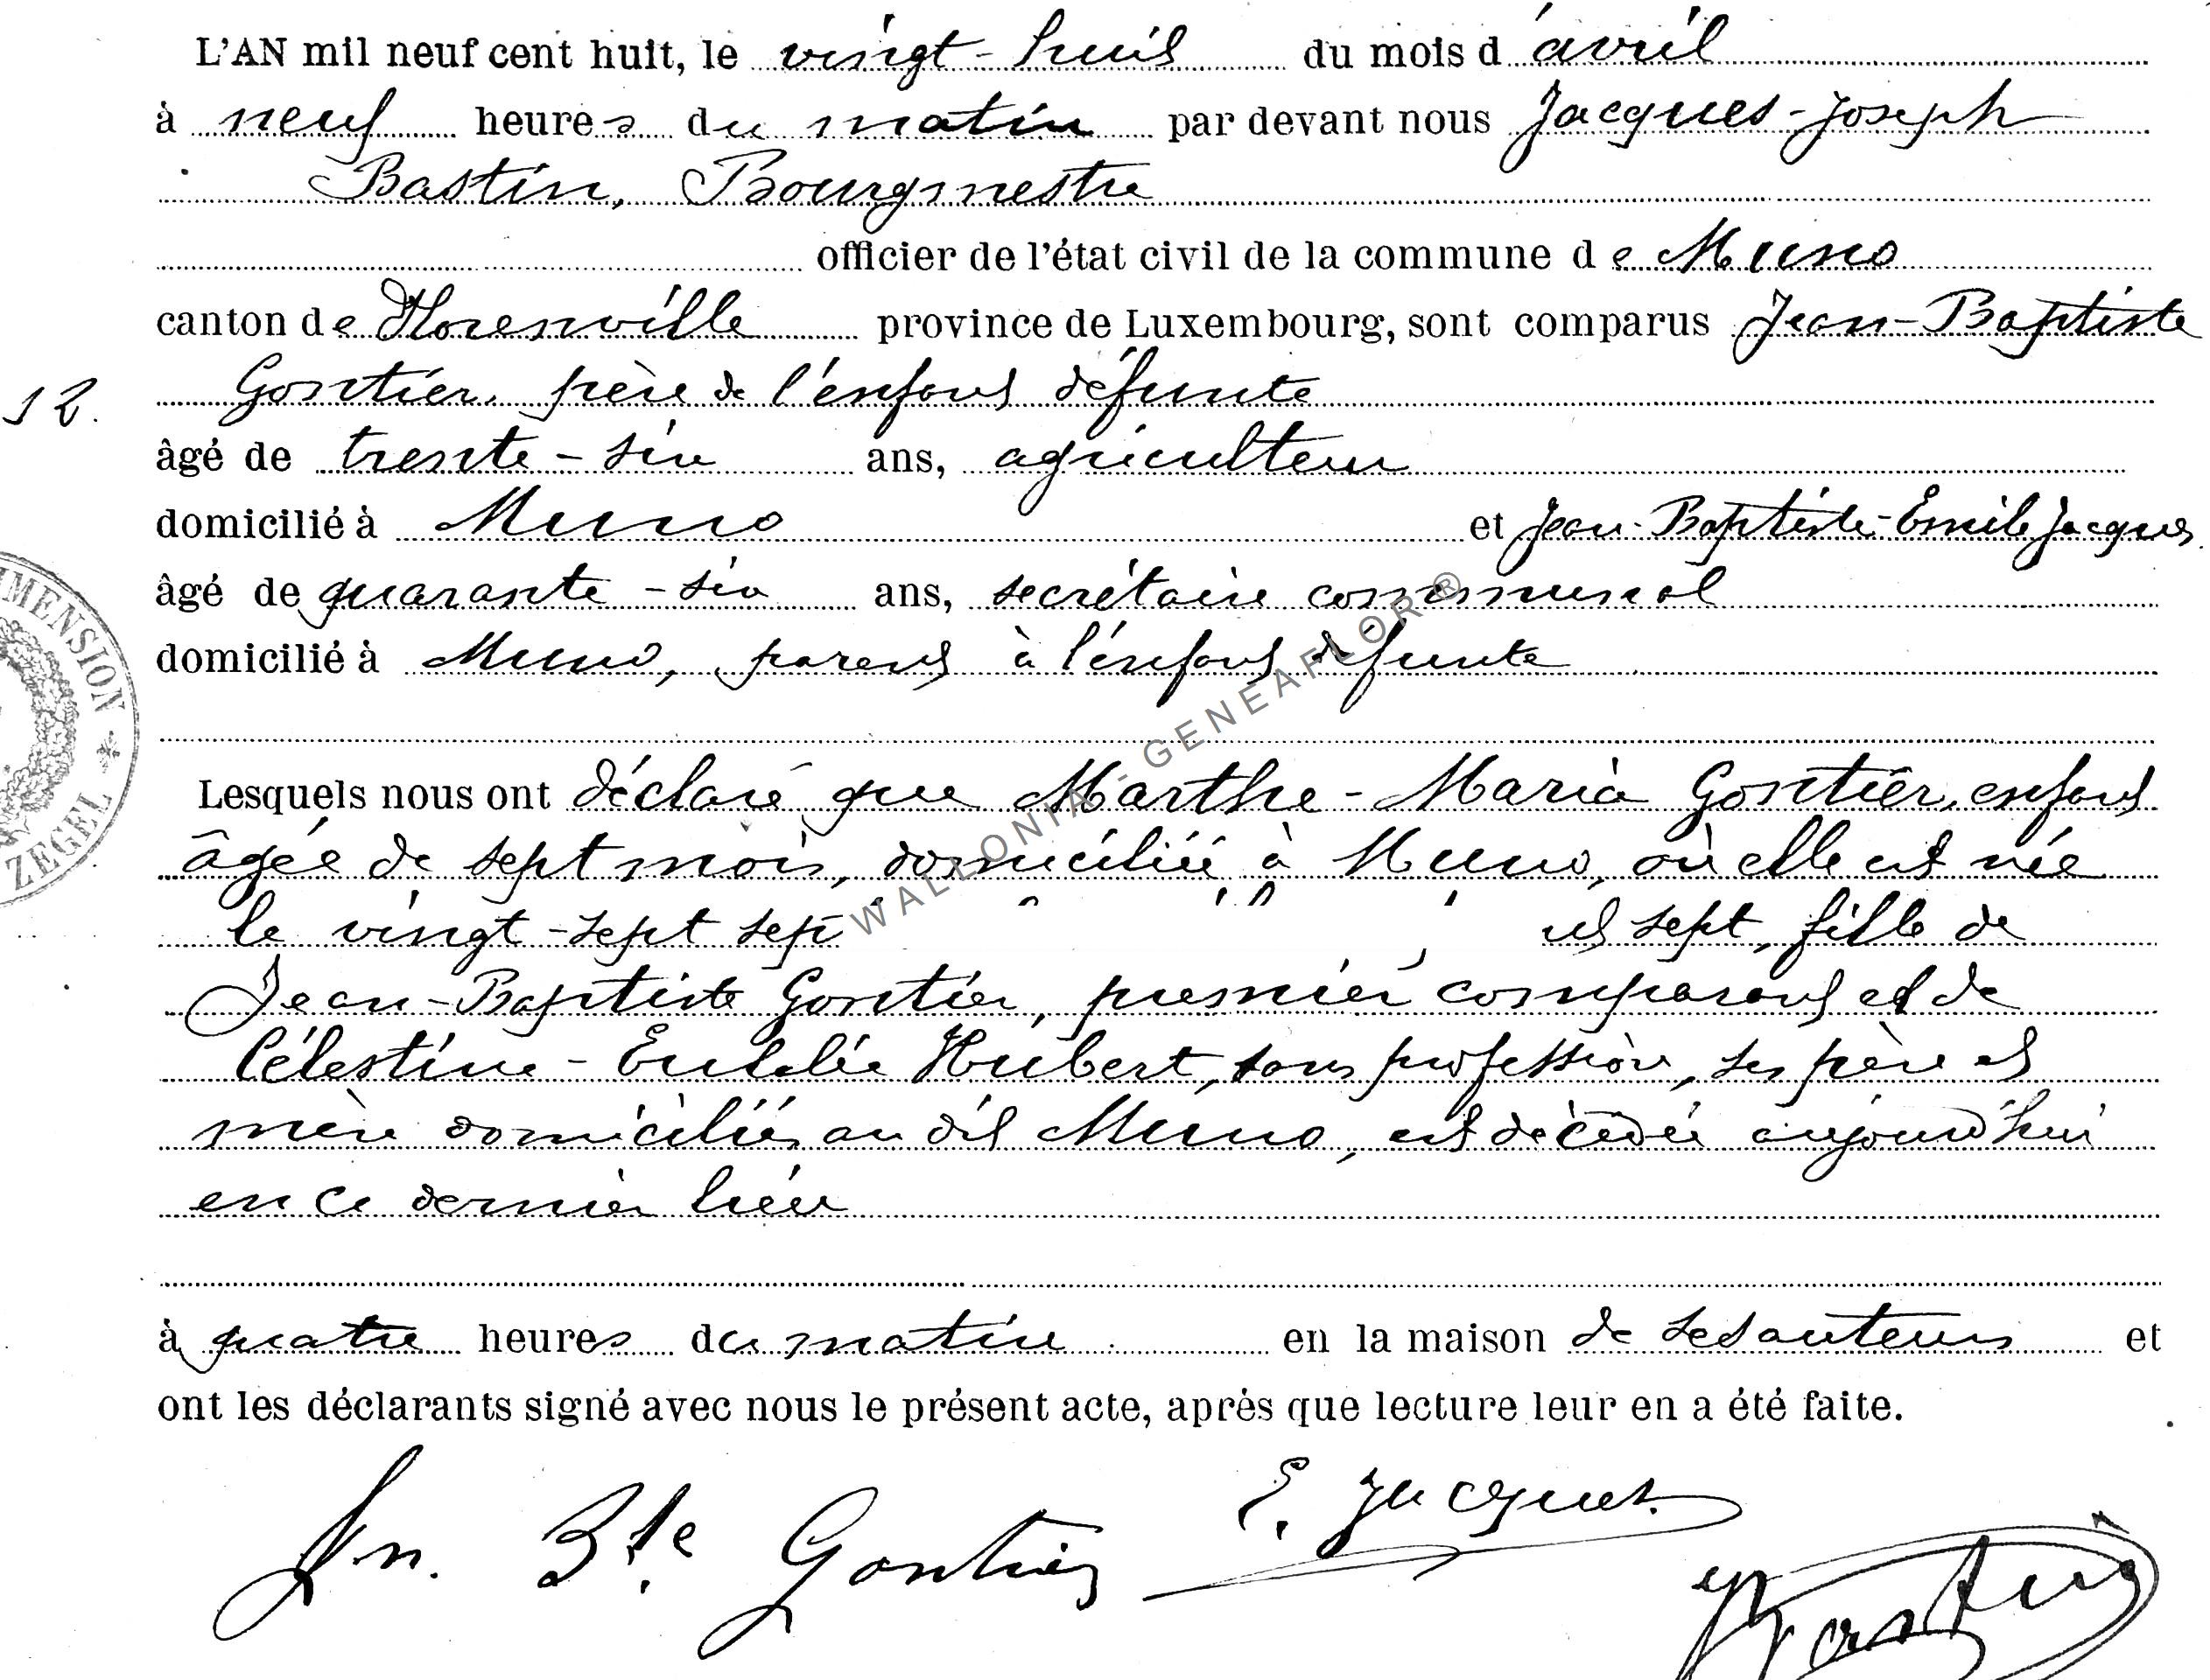 L'AN mil neuf cent huit, le vingt-huit du mois d'avril
à neuf heures du matin par devant nous Jacques-Joseph
Bastin, Bourgmestre
officier de l'état civil de la commune de Muno
canton de Florenville province de Luxembourg, sont comparus Jean-Baptiste
12. Gontier, père de l'enfant défunte
âgé de trente-six ans, agriculteur
domicilié à Muno et Jean-Baptiste-Emile Jacques
âgé de quarante-six ans, secrétaire communal
domicilié à Muno, parent à l'enfant défunte
MENSION * ZEGEL
WALLONIA-GENEAFLOR®
Lesquels nous ont déclaré que Marthe-Maria Gontier, enfant
âgée de sept mois, domiciliée à Muno, où elle est née
le vingt-sept sept, fille de
Jean-Baptiste Gontier, premier comparant et de
Célestine-Eulalie Hubert, sans profession, ses père et
mère domiciliés au dit Muno, est décédée aujourd'hui
en ce dernier lieu
à quatre heures du matin en la maison de ses auteurs et
ont les déclarants signé avec nous le présent acte, après que lecture leur en a été faite.
Jn. Bte Gontier
E. Jacques
Bastin